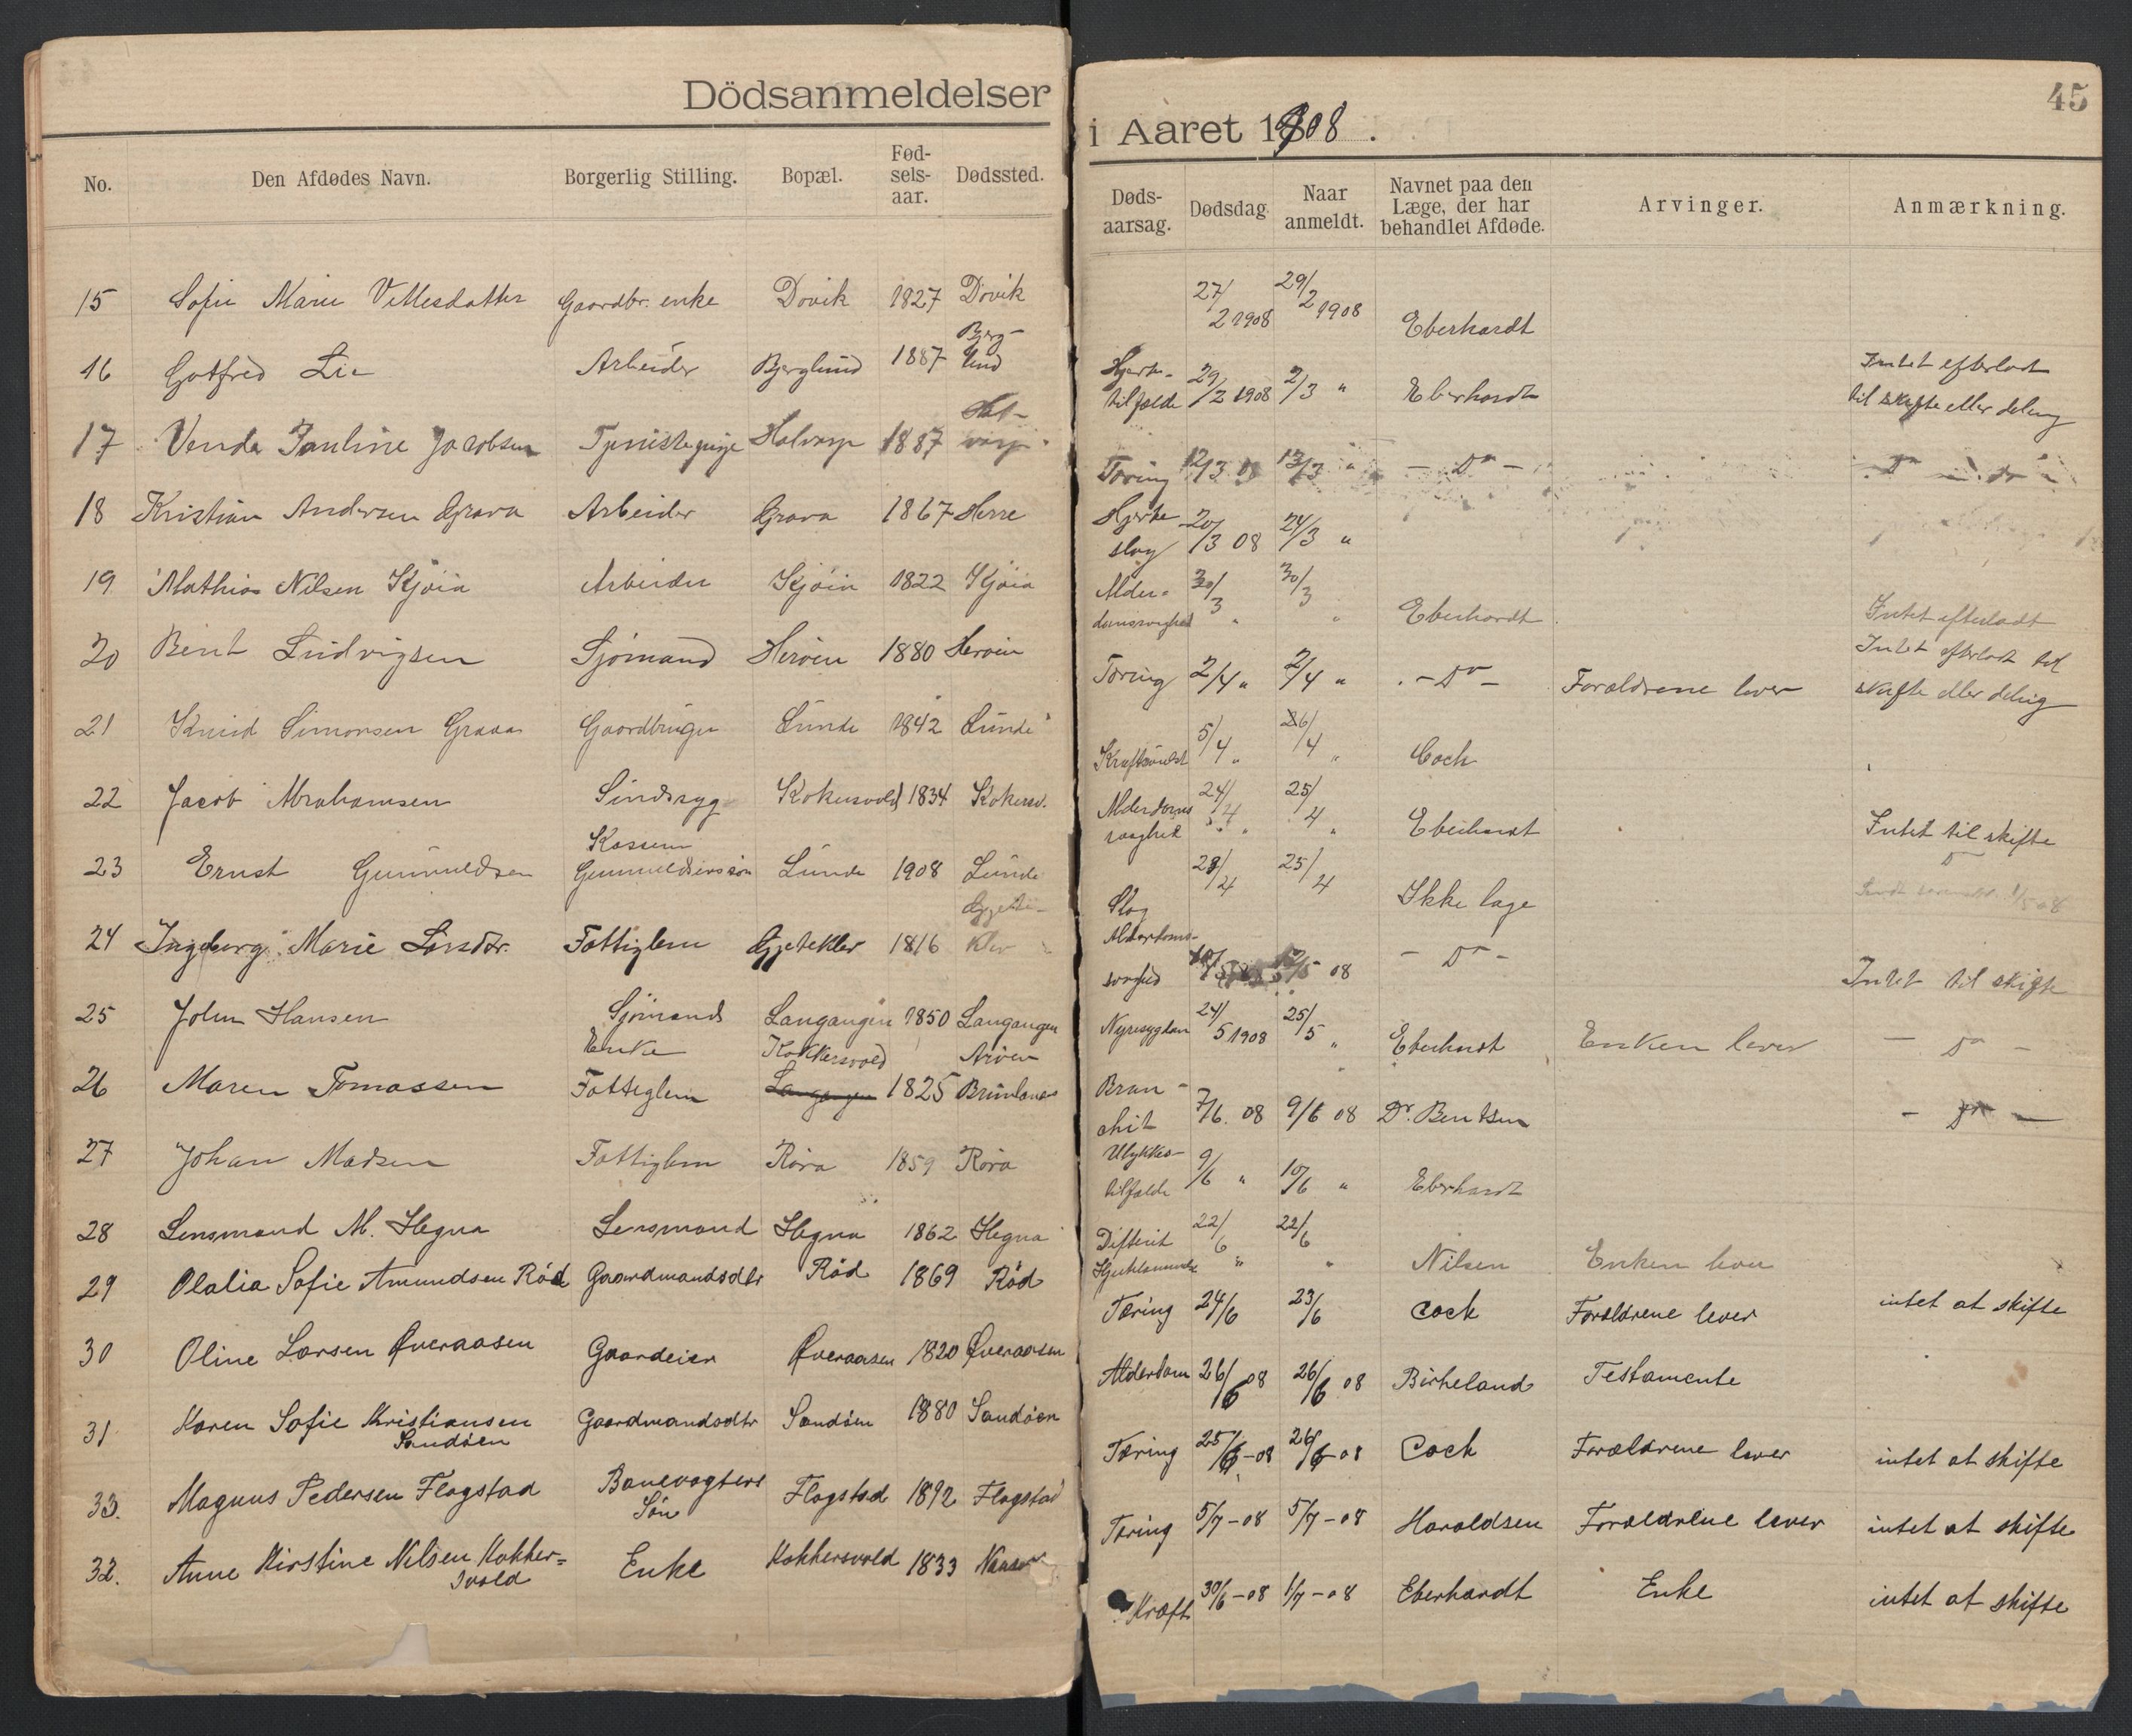 Dödsanmeldelser i Aaret 1908.
45
No. Den Afdødes Navn. Borgerlig Stilling. Bopæl. Fødselsaar. Dødssted. Dødsaarsag. Dødsdag. Naar anmeldt. Navnet paa den Læge, der har behandlet Afdøde. Arvinger. Anmærkning.
15 Sofie Marie Villesdatter Gaardbr. enke Dovik 1827 Dovik 27/2 1908 29/2 1908 Eberhardt
16 Gotfred Lie Arbeider Berglund 1887 Berglund Hjertetilfælde 29/2 1908 2/3 " Eberhardt Intet efterladt til skifte eller deling
17 Venda Pauline Jacobsen Tjenistepige Halvarp 1887 Tæring 12/3 08 13/3 " - Do -
18 Kristian Andersen Grava Arbeider Grava 1867 Herre Hjerteslag 20/3 08 24/3 "
19 Mathias Nilsen Kjöia Arbeider Kjöia 1822 Kjöia Alderdomssvaghed 30/3 " 30/3 " Eberhardt Intet efterladt
20 Bernt Ludvigsen Sjömand Heröen 1880 Heröen Tæring 2/4 " 2/4 " - Do - Forældrene lever Intet efterladt til skifte eller deling
21 Knud Simonsen Grava Gaardbruger Lunde 1842 Lunde Kræftsvulst 5/4 " 26/4 " Cock
22 Jacob Abrahamsen Sindssyg Kokersvold 1834 Kokersv. Alderdomssvaghet 24/4 " 25/4 " Eberhardt Intet til skifte
23 Ernst Gunnuldsen Kassem Gunnuldsens sön Lunde 1908 Lunde Slag 23/4 25/4 Ikke læge Do
24 Ingeborg Marie Larsdtr. Fattiglem Gjeteklev 1816 Gjeteklev Alderdomssvaghed /5 08 - Do - Intet til skifte
25 John Hansen Sjömand Langangen 1850 Langangen Nyresygdom 24/5 1908 25/5 " Eberhardt Enken lever - Do -
26 Maren Tomassen Enke Fattiglem Kokkersvold Langangen 1825 Aröen Brunlanes Bronchit 7/6 08 9/6 08 Dr. Bentsen - Do -
27 Johan Madsen Fattiglem Röra 1859 Röra Ulykkestilfælde 9/6 " 10/6 " Eberhardt
28 Lensmand M. Hegna Lensmand Hegna 1862 Hegna Difterit Hjertelammelse 22/6 " 22/6 " Nilsen Enken lever
29 Olalia Sofie Amundsen Röd Gaardmandsdtr Röd 1869 Röd Tæring 24/6 23/6 Cock Forældrene lever intet at skifte
30 Oline Larsen Øveraasen Gaardeier Øveraasen 1820 Øveraasen Alderdom 26/6 08 26/6 08 Birkeland Testamente
31 Karen Sofie Kristiansen Sandöen Gaardmandsdtr Sandöen 1880 Sandöen Tæring 25/6-08 26/6-08 Cock Forældrene lever intet at skifte
33. Magnus Pedersen Flogstad Banevogters Sön Flogstad 1892 Flogstad Tæring 5/7-08 5/7-08 Haraldsen Forældrene lever intet at skifte
32. Anne Kirstine Nilsen Kokkersvold Enke Kokkersvold 1833 Kræft 30/6-08 1/7-08 Eberhardt Enke intet at skifte